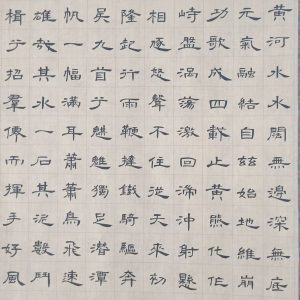 黃河水水闊無邊深無底
元氣融結自茲始地維崩
功歌成四載止黃熊化作
峙盤渦蕩激回湍沖射懸
相豗怒聲不住從天來初
隆起行雨鞭撻鐵騎驅奔
吳一九首行魋魋獨足潛潭
帆一幅滿耳蕭蕭鳥飛速
雄哉其水一石其泥數斗
楫兮招羣儔而揮手好風